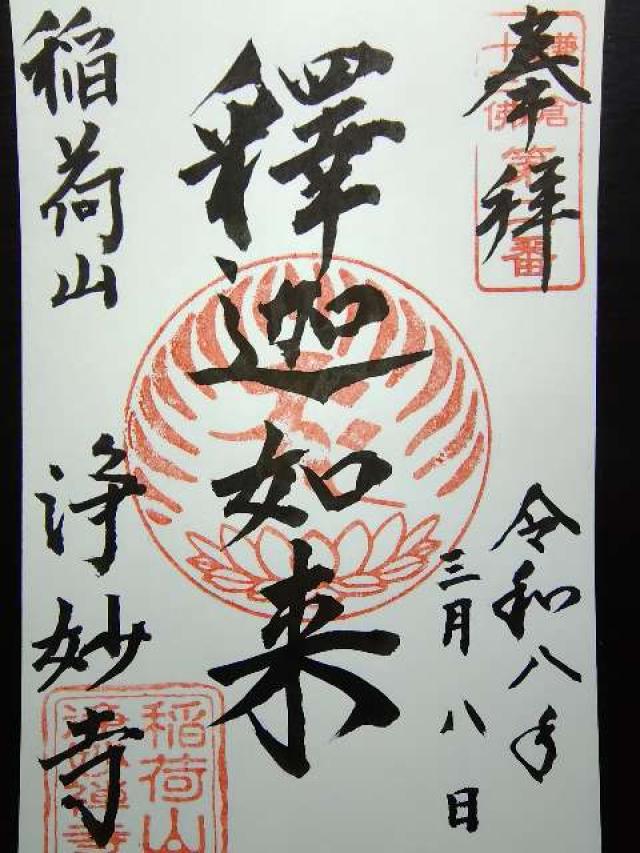 奉拝
鎌倉
十三佛
第二番
令和八年
三月八日
釋迦如来
稲荷山
浄妙寺
稲荷山